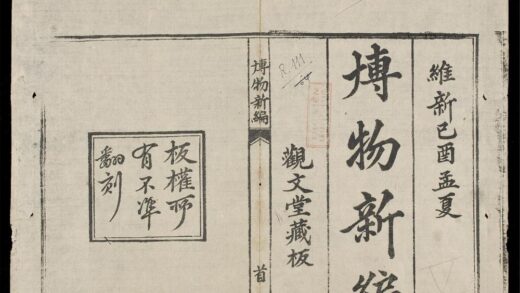 維新己酉孟夏
博物新編
觀文堂藏板
博物新編
首
板權所
有不準
翻刻
R.111